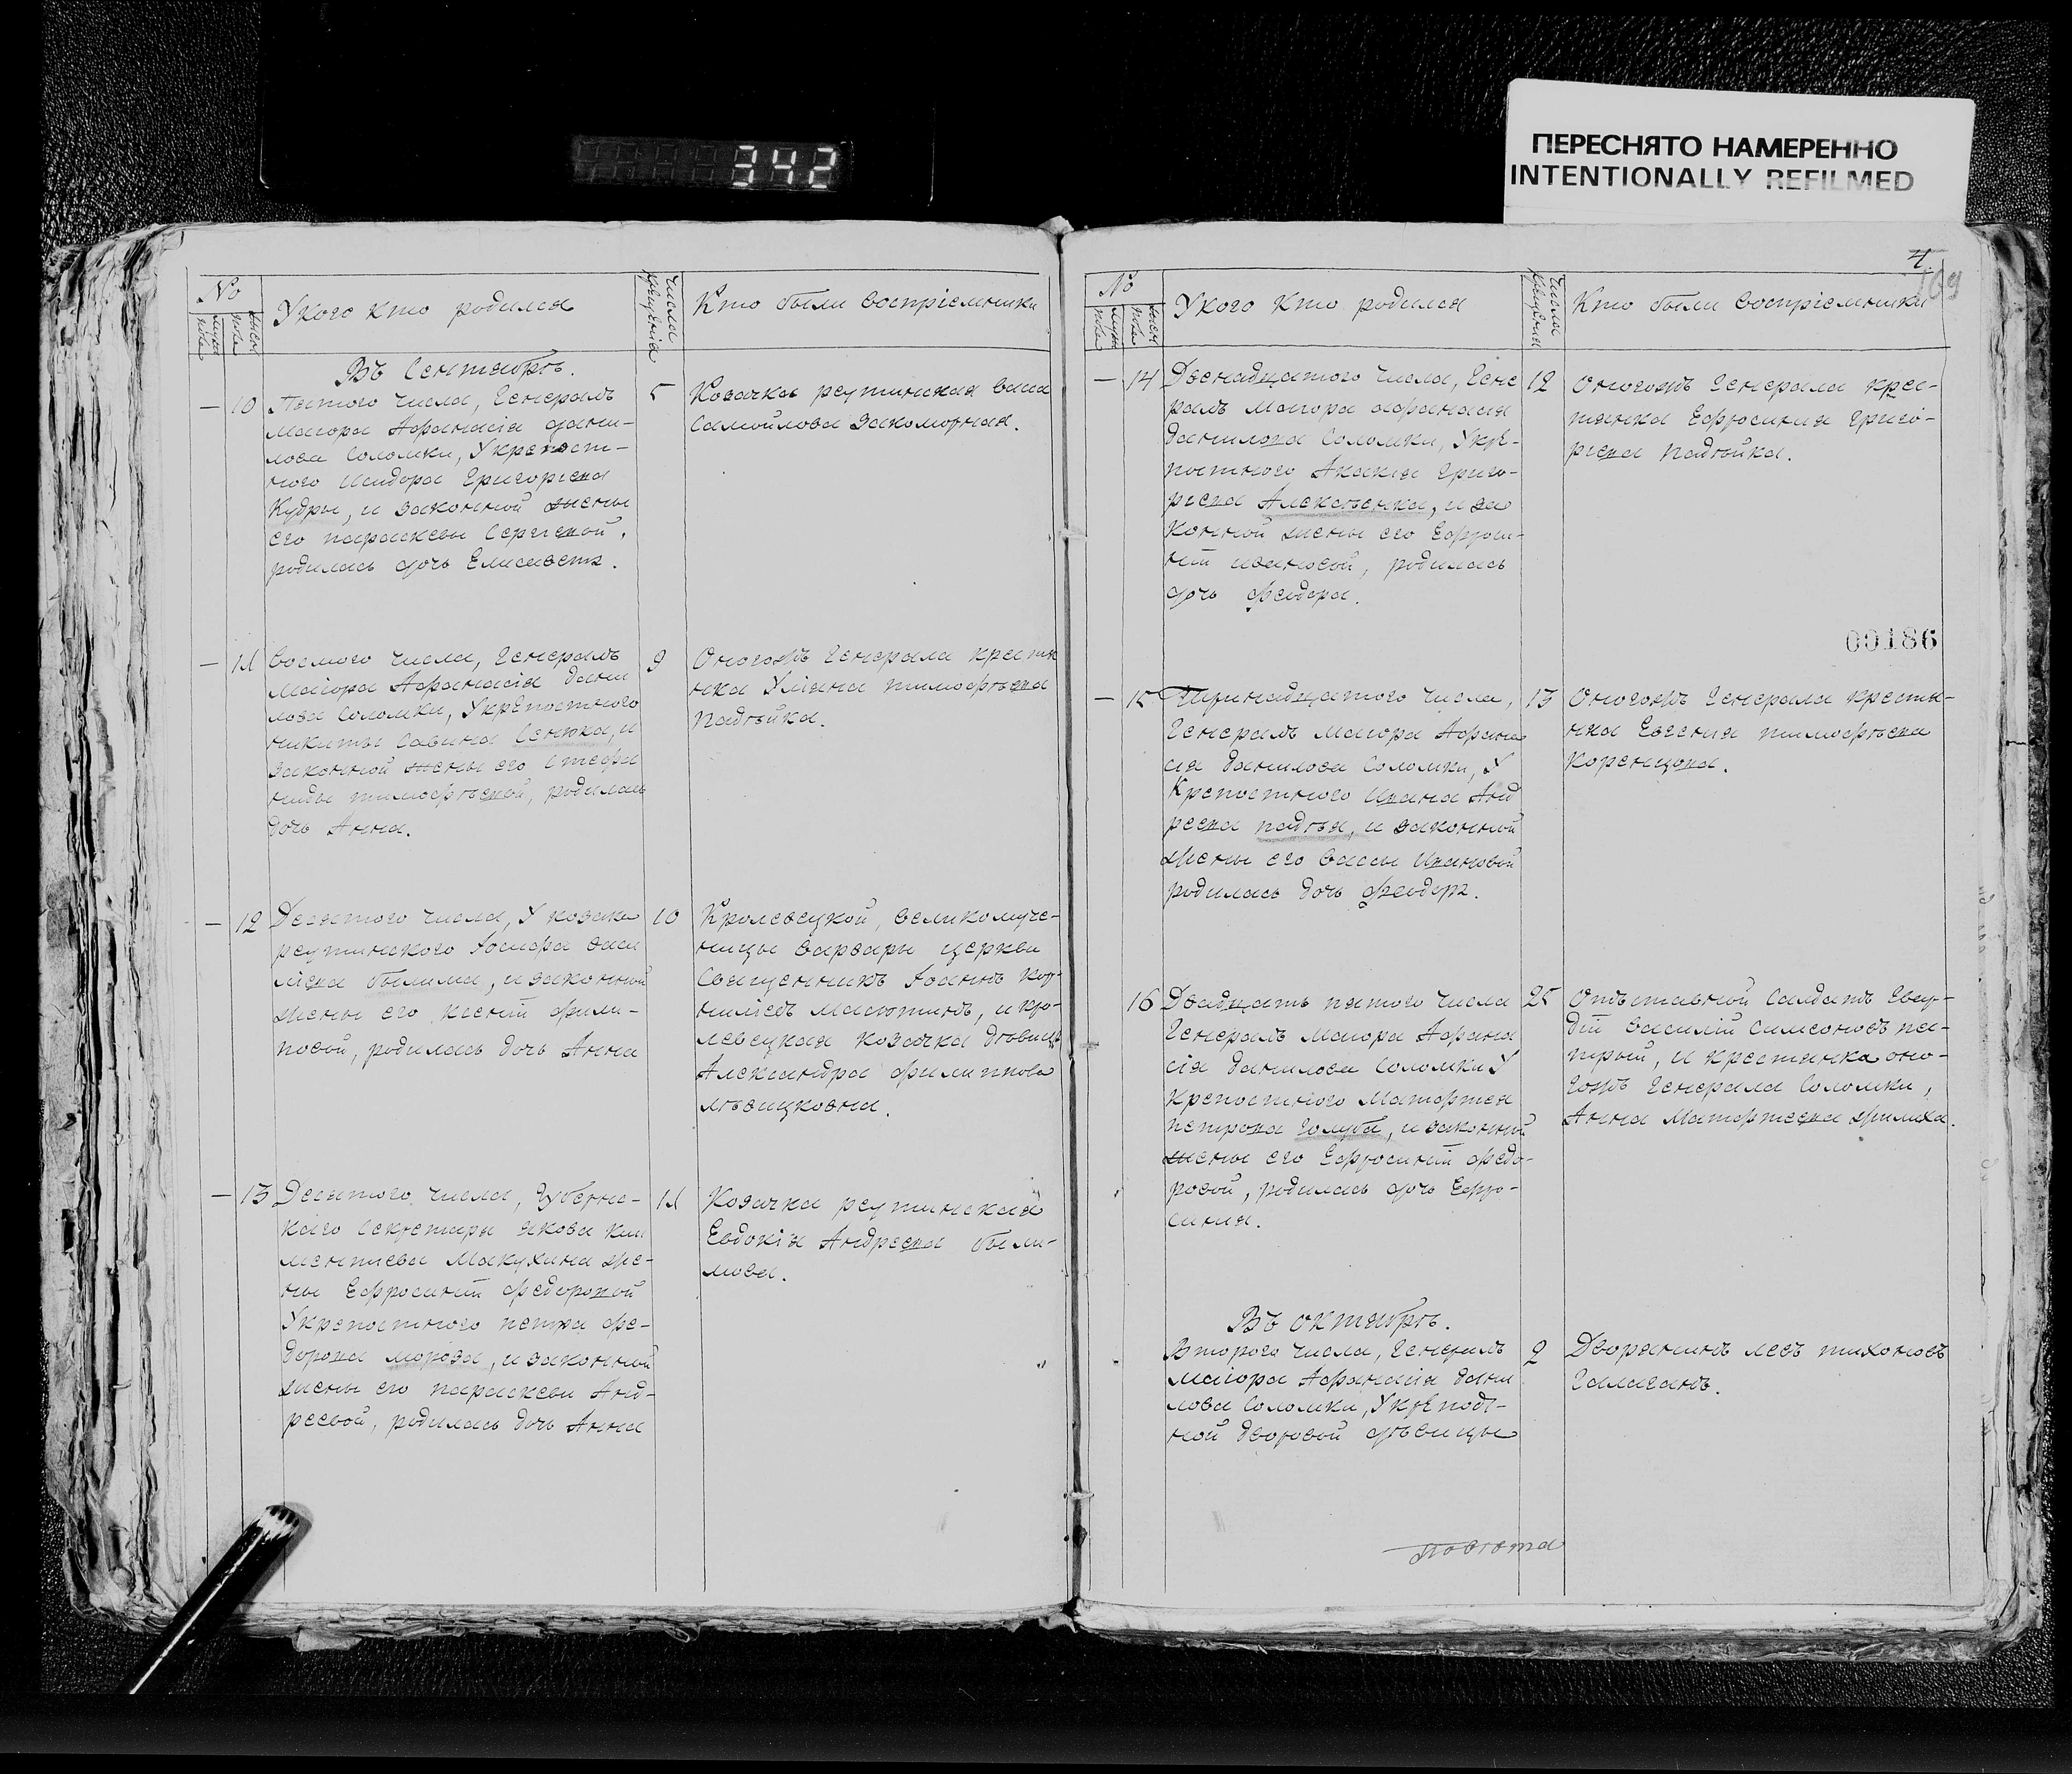 342
ПЕРЕСНЯТО НАМЕРЕННО
INTENTIONALLY REFILMED
№
У кого кто родился
Числа крещенія
Кто были воспріемники
Въ Сентябрѣ.
10
Пятого числа, Генералъ
5
Маіора Афанасія Дани-
лова Соломки, У крепост-
ного Исидора Григориева
Кудры, и законной жены
его параскевы Сергиевой,
родилась дочь Елисавета.
Козачка реутинская
Самойлова Закоморная.
11
Восмого числа, Генералъ
9
Маіора Афанасія Дани
лова Соломки, У крѣпостного
никиты Савина Сенюка, и
законной жены его Стефа
ниды тимофѣевой, родилась
дочь Анна.
Оногожъ Генерала крестья
нка Уліяна тимофѣева
Падѣйка.
12
Десятого числа, У козака
10
реутинского Іосифа васи
ліева былима, и законной
жены его ксеніи фили-
повой, родилась дочь Анна
Кролевецкой, великомуче-
ницы варвары церкви
Священникъ Іоаннъ кор-
ниліевъ Масютинъ, и кро-
левецкая козачка дѣвица
Александра филиппова
13
Десятого числа, Губернс-
11
каго Секретаря якова кли
ментиева Макухина же-
ны Ефросиніи федоровой
У крепостного петра фе-
дорова мороза, и законной
жены его параскеви Анд-
реевой, родилась дочь Анна
Козачка реутинская
Евдокія Андреева были-
мова.
4
169
№
У кого кто родился
Числа крещения
Кто были воспріемники
14
Двенадцатого числа, Гене
12
ралъ Маіора афанасия
данилова Соломки, У крѣ-
постного Акакия Григо-
риева Алексѣенка, и за
конной жены его Ефроси-
ніи ивановой, родилась
дочь феодора.
Оногожъ Генерала крес-
тянка Ефросиния Григо-
риева Падѣйка.
00186
15
Тиринадцатого числа,
13
Генералъ маиора Афана
сия данилова Соломки, У
Крепостного Ивана Анд
реева падѣя, и законной
жены его вассы Ивановой
родилась дочь феодора.
Оногожъ Генерала крестья-
нка Евгения тимофѣева
Коренцова.
16
Двадцать пятого числа
25
Генералъ Маиора Афана
сія данилова Соломки У
крепостного Матфтея
петрова Голуба, и законной
жены его Ефросиніи федо-
ровой, родилась дочь Ефро-
синия.
Отъставной Салдатъ
Василій Симеоновъ
и крестянка оно-
гожъ Генерала Соломки,
Анна Матфтеева
Въ октябрѣ.
Второго числа, Генералъ
2
маіора Афанасія дани
лова Соломки, У крѣпост-
ной дворовой дѣвицы
Дворянинъ левъ тихоновъ
Галаганъ.